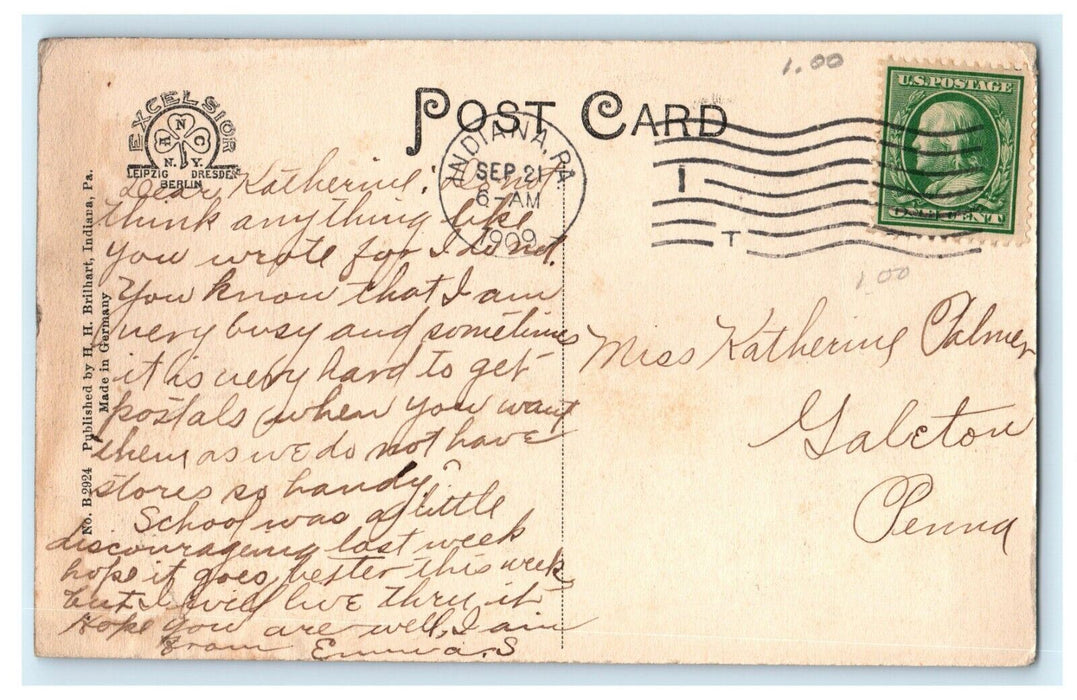 1.00
POST CARD
U.S. POSTAGE
ONE CENT
EXCELSIOR
N.Y.
LEIPZIG DRESDEN
BERLIN
INDIANA, PA.
SEP 21
6-AM
1909
I
T
1.00
No. B2924 Published by H. H. Brilhart, Indiana, Pa.
Made in Germany
Dear Katherine. Do not
think anything like
you wrote for I do not.
You know that I am
very busy and sometimes
it is very hard to get
postals when you want
them as we do not have
stores so handy.
School was a little
discourageing last week
hope it goes better this week
but I will live thru it
Hope you are well, I am
From Emma. S
Miss Katherine Palmer
Galeton
Penna